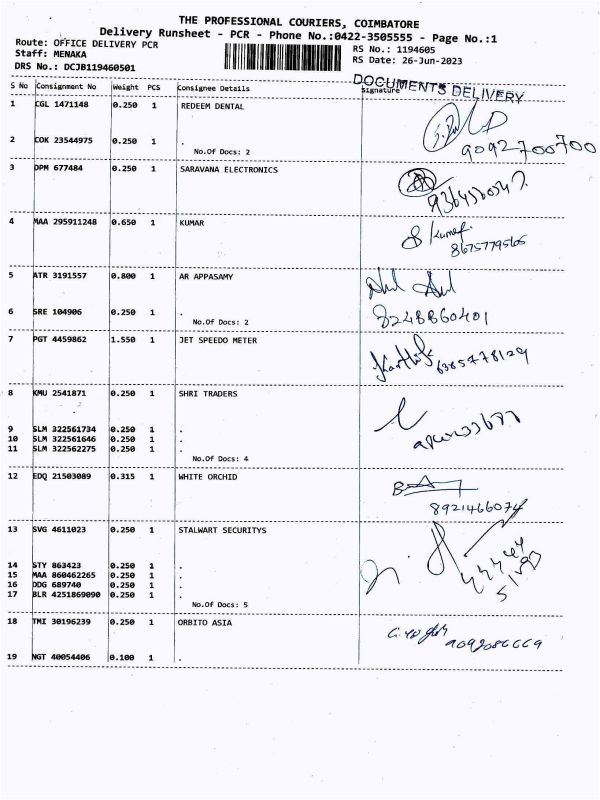 THE PROFESSIONAL COURIERS, COIMBATORE
Delivery Runsheet - PCR - Phone No.:0422-3505555 - Page No.:1
Route: OFFICE DELIVERY PCR
Staff: MENAKA
DRS No.: DCJB119460501
RS No.: 1194605
RS Date: 26-Jun-2023
DOCUMENTS DELIVERY
S No Consignment No Weight PCS Consignee Details Signature
1 CGL 1471148 0.250 1 REDEEM DENTAL
2 COK 23544975 0.250 1 .
No.Of Docs: 2
9092700700
3 DPM 677484 0.250 1 SARAVANA ELECTRONICS
4 MAA 295911248 0.650 1 KUMAR
Kumar
8675779565
5 ATR 3191557 0.800 1 AR APPASAMY
6 SRE 104906 0.250 1 .
No.Of Docs: 2
8248860401
7 PGT 4459862 1.550 1 JET SPEEDO METER
Karthik 6385778129
8 KMU 2541871 0.250 1 SHRI TRADERS
9 SLM 322561734 0.250 1 .
10 SLM 322561646 0.250 1 .
11 SLM 322562275 0.250 1 .
No.Of Docs: 4
12 EDQ 21503089 0.315 1 WHITE ORCHID
8921466074
13 SVG 4611023 0.250 1 STALWART SECURITYS
14 STY 863423 0.250 1 .
15 MAA 860462265 0.250 1 .
16 DDG 689740 0.250 1 .
17 BLR 4251869090 0.250 1 .
No.Of Docs: 5
18 TMI 30196239 0.250 1 ORBITO ASIA
19 NGT 40054406 0.100 1 .